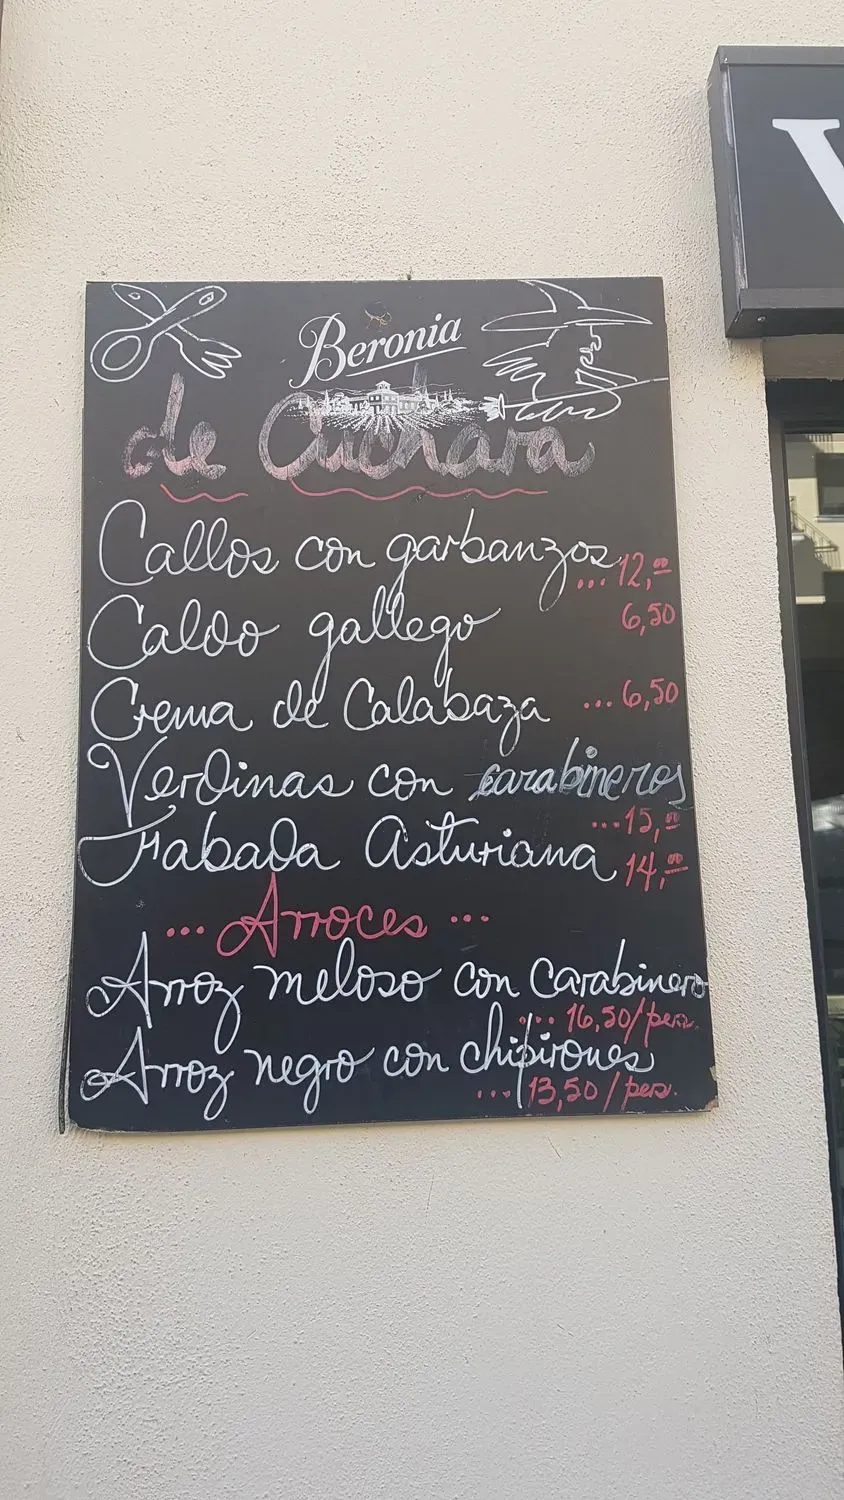 V
Beronia
de Cuchara
Callos con garbanzos
...12,00
Caldo gallego 6,50
Crema de Calabaza ...6,50
Verdinas con carabineros
...15,00
Fabada Asturiana 14,00
... Arroces ...
Arroz meloso con Carabinero
... 16,50/pers.
Arroz negro con chipirones
... 13,50/pers.